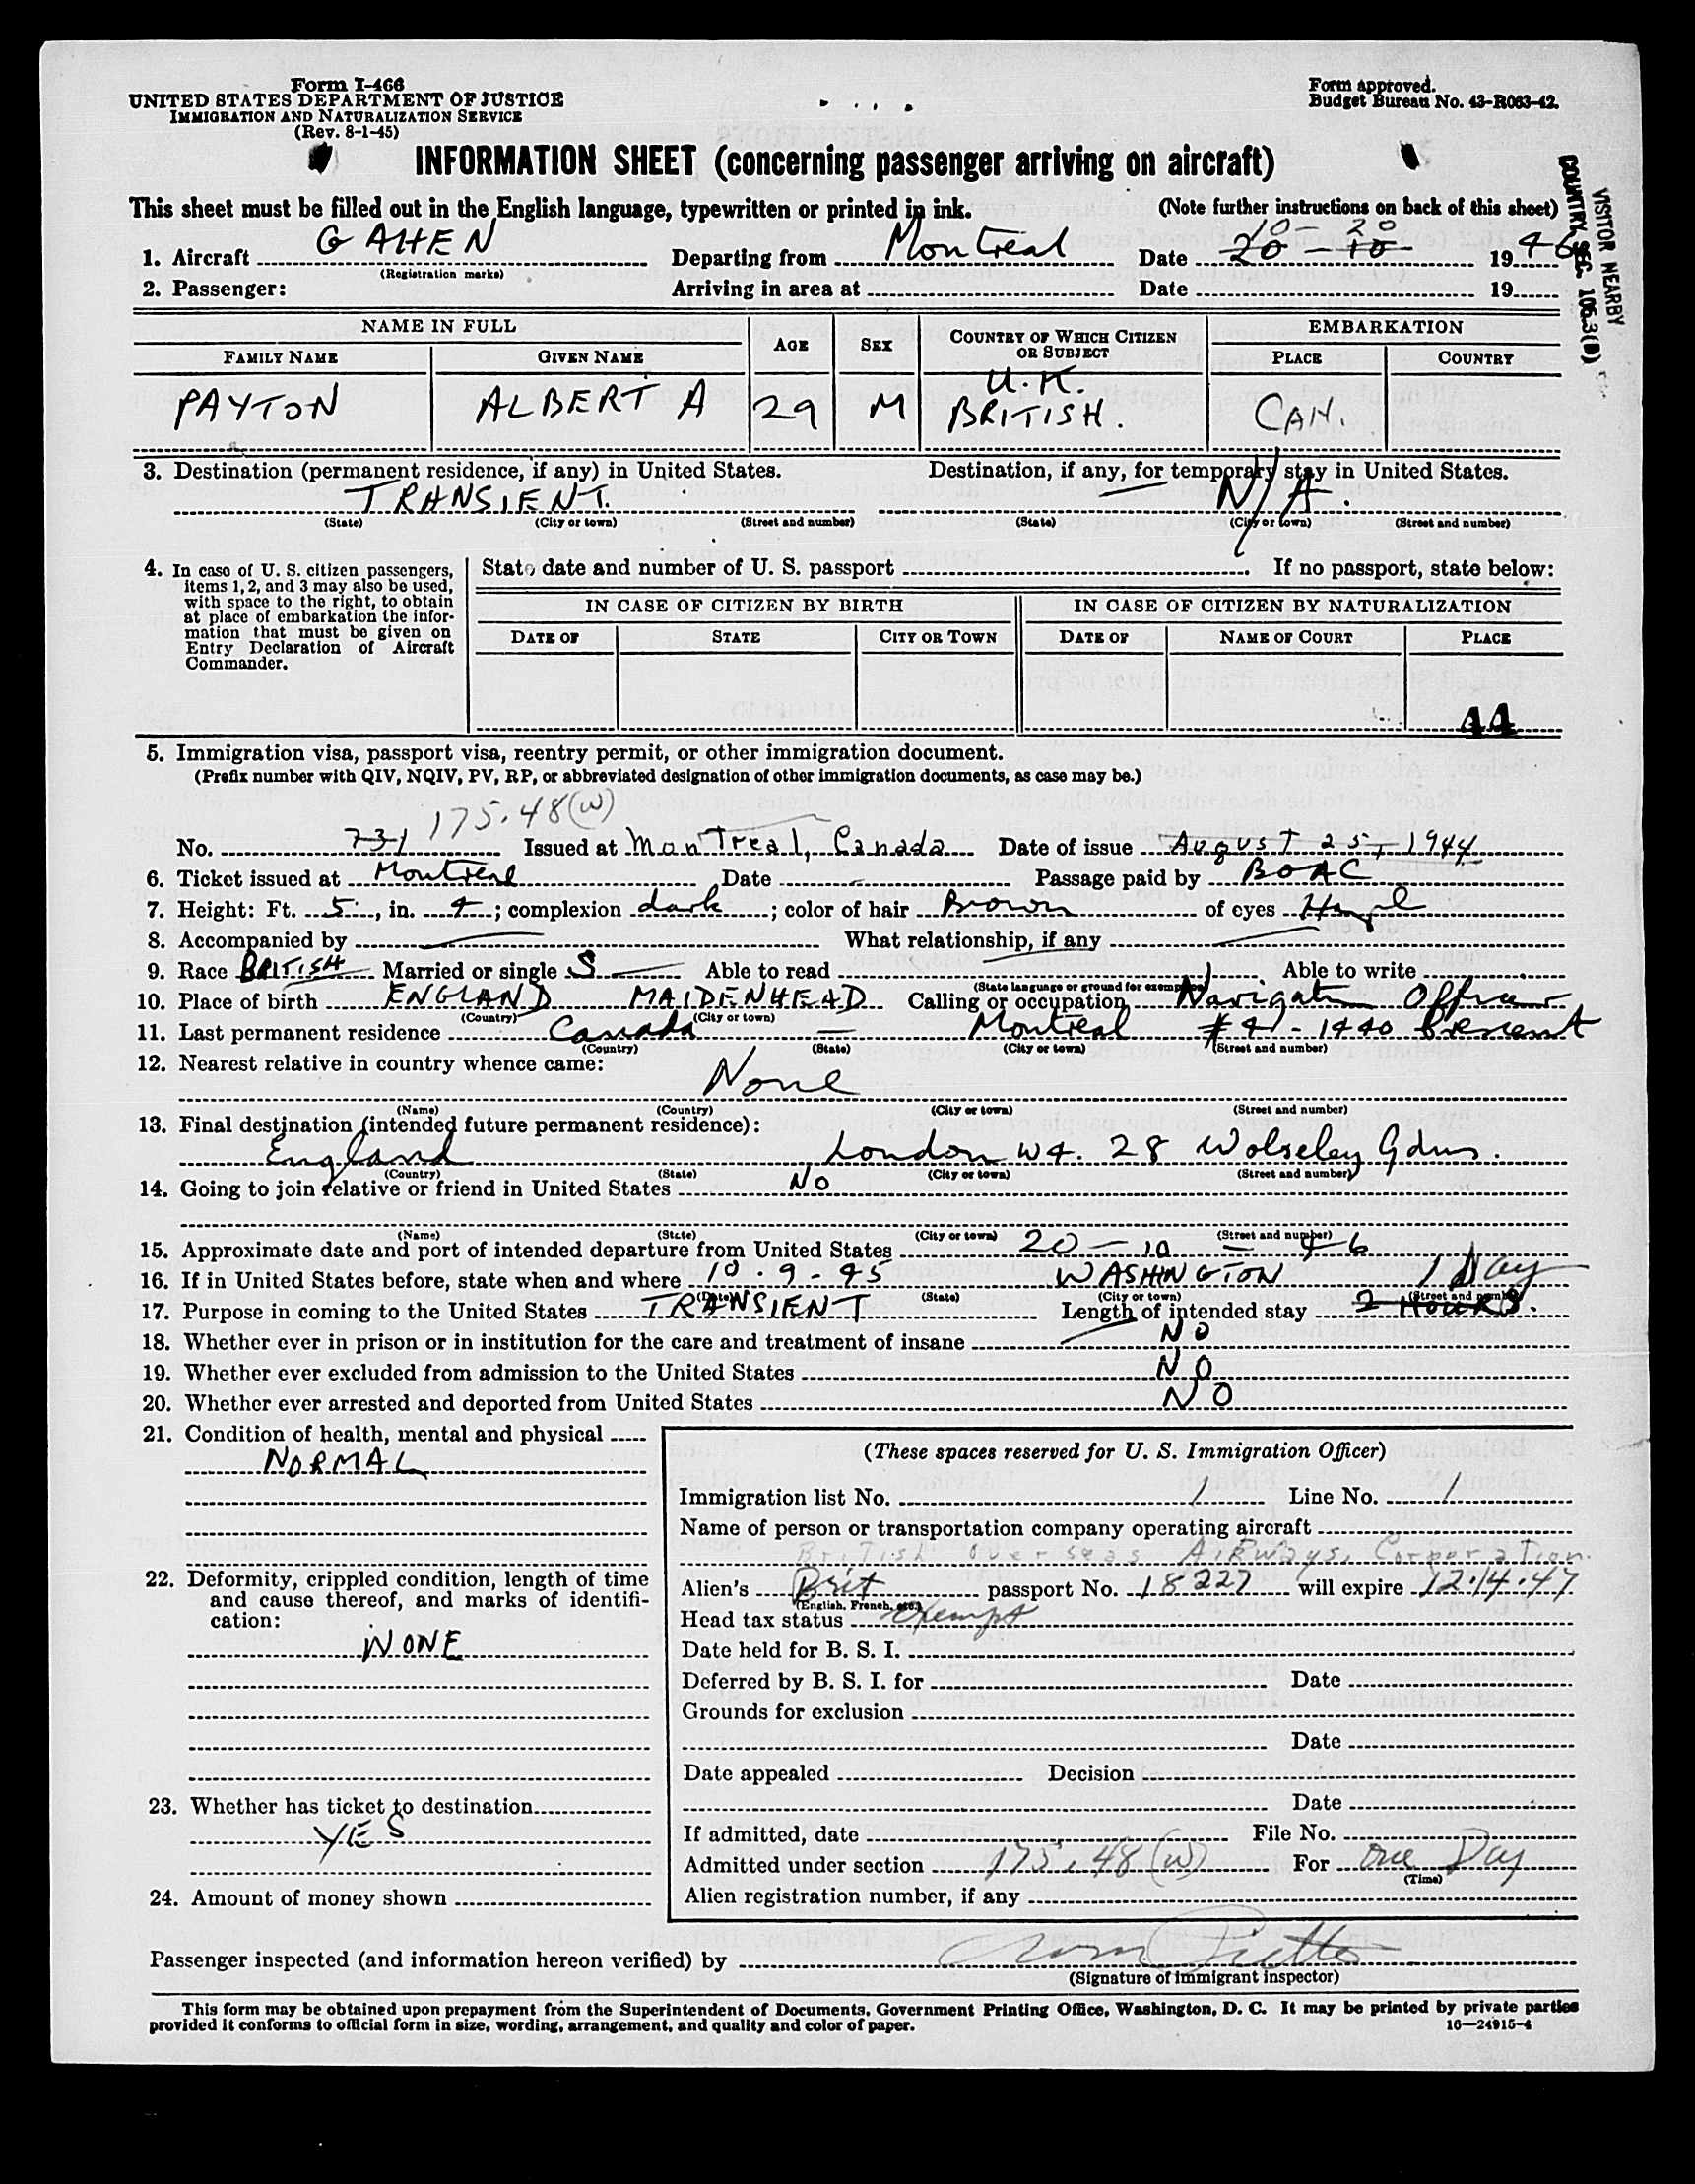 Form I-466
UNITED STATES DEPARTMENT OF JUSTICE
IMMIGRATION AND NATURALIZATION SERVICE
(Rev. 8-1-45)
Form approved.
Budget Bureau No. 43-R063-42.
INFORMATION SHEET (concerning passenger arriving on aircraft)
This sheet must be filled out in the English language, typewritten or printed in ink. (Note further instructions on back of this sheet)
VISITOR NEARBY
COUNTRY SEC. 106.3(B)
10- 20
1. Aircraft G AHEN Departing from Montreal Date 20 - 10 1946
(Registration marks)
2. Passenger: Arriving in area at Date 19
NAME IN FULL AGE SEX COUNTRY OF WHICH CITIZEN OR SUBJECT EMBARKATION
FAMILY NAME GIVEN NAME PLACE COUNTRY
PAYTON ALBERT A 29 M U.K. BRITISH. CAN.
3. Destination (permanent residence, if any) in United States. Destination, if any, for temporary stay in United States.
TRANSIENT. N/A.
(State) (City or town) (Street and number) (State) (City or town) (Street and number)
4. In case of U. S. citizen passengers, items 1, 2, and 3 may also be used, with space to the right, to obtain at place of embarkation the information that must be given on Entry Declaration of Aircraft Commander.
State date and number of U. S. passport If no passport, state below:
IN CASE OF CITIZEN BY BIRTH IN CASE OF CITIZEN BY NATURALIZATION
DATE OF STATE CITY OR TOWN DATE OF NAME OF COURT PLACE
44
5. Immigration visa, passport visa, reentry permit, or other immigration document.
(Prefix number with QIV, NQIV, PV, RP, or abbreviated designation of other immigration documents, as case may be.)
175.48(w)
No. 731 Issued at Montreal, Canada Date of issue August 25, 1944
6. Ticket issued at Montreal Date Passage paid by BOAC
7. Height: Ft. 5, in. 4; complexion dark; color of hair Brown of eyes Hazel
8. Accompanied by What relationship, if any
9. Race BRITISH Married or single S Able to read Able to write
(State language or ground for exemption)
10. Place of birth ENGLAND MAIDENHEAD Calling or occupation Navigation Officer
(Country) (City or town)
11. Last permanent residence Canada Montreal #41-1440
(Country) (State) (City or town) (Street and number)
12. Nearest relative in country whence came:
None
(Name) (Country) (City or town) (Street and number)
13. Final destination (intended future permanent residence):
England London W4. 28 Wolseley Gdns.
(Country) (State) (City or town) (Street and number)
14. Going to join relative or friend in United States NO
(Name) (State) (City or town) (Street and number)
15. Approximate date and port of intended departure from United States 20 - 10 - 46
16. If in United States before, state when and where 10.9-45 WASHINGTON
(Date) (State) (City or town) (Street and number)
1 Day
17. Purpose in coming to the United States TRANSIENT Length of intended stay 2 HOURS.
18. Whether ever in prison or in institution for the care and treatment of insane NO
19. Whether ever excluded from admission to the United States NO
20. Whether ever arrested and deported from United States NO
21. Condition of health, mental and physical
NORMAL
22. Deformity, crippled condition, length of time and cause thereof, and marks of identification:
NONE
23. Whether has ticket to destination
YES
24. Amount of money shown
(These spaces reserved for U. S. Immigration Officer)
Immigration list No. 1 Line No. 1
Name of person or transportation company operating aircraft
British Overseas Airways, Corporation.
Alien's Brit passport No. 18227 will expire 12.14.47
(English, French, etc.)
Head tax status Exempt
Date held for B. S. I.
Deferred by B. S. I. for Date
Grounds for exclusion
Date
Date appealed Decision
Date
If admitted, date File No.
Admitted under section 175.48(w) For One Day
(Time)
Alien registration number, if any
Passenger inspected (and information hereon verified) by
(Signature of immigrant inspector)
This form may be obtained upon prepayment from the Superintendent of Documents, Government Printing Office, Washington, D. C. It may be printed by private parties
provided it conforms to official form in size, wording, arrangement, and quality and color of paper.
16—24915-4